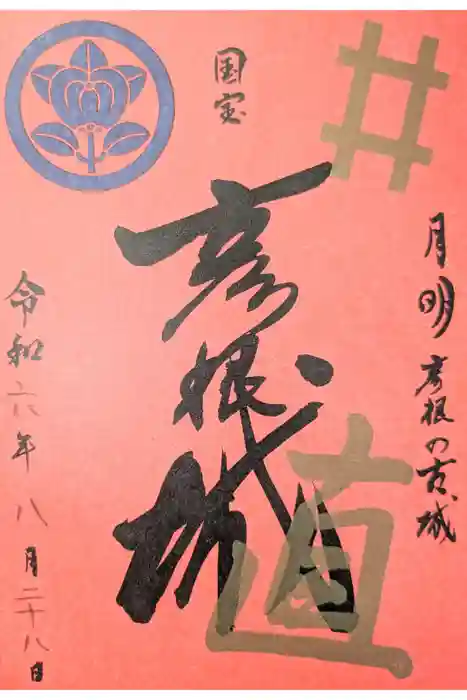 月明 彦根の古城
国宝
彦根城
井
直
令和六年八月二十八日